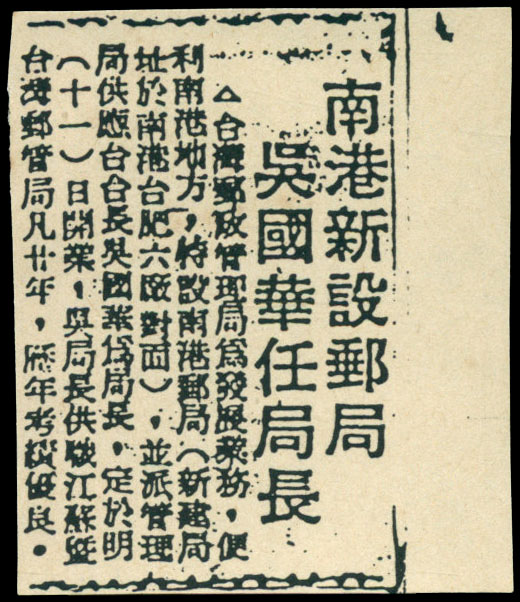 南港新設郵局
吳國華任局長
△台灣郵政管理局為發展業務，便
利南港地方，特設南港郵局（新建局
址於南港台肥六廠對面），並派管理
局供應台台長吳國華為局長，定於明
（十一）日開業，吳局長供職江蘇暨
台灣郵管局凡廿年，歷年考績優良。